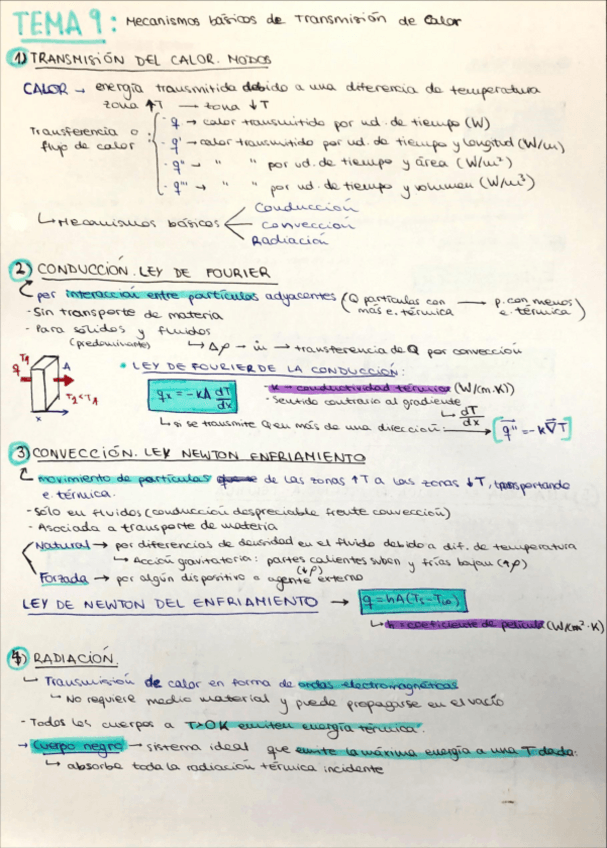 TEMA 9: Mecanismos básicos de Transmisión de Calor
1) TRANSMISIÓN DEL CALOR. MODOS
CALOR → energía transmitida debido a una diferencia de temperatura
zona ↑T → zona ↓T
Transferencia o flujo de calor:
· q → calor transmitido por ud. de tiempo (W)
· q' → calor transmitido por ud. de tiempo y longitud (W/m)
· q'' → " " por ud. de tiempo y área (W/m²)
· q''' → " " por ud. de tiempo y volumen (W/m³)
↳ Mecanismos básicos
Conducción
Convección
Radiación
2) CONDUCCIÓN. LEY DE FOURIER
por interacción entre partículas adyacentes (Q partículas con más e. térmica → p. con menos e. térmica)
- Sin transporte de materia
- Para sólidos y fluidos
(predominante) ↳ Δρ → ṁ → transferencia de Q por convección
• LEY DE FOURIER DE LA CONDUCCIÓN:
T₁ q A T₂<T₁ x
qx = -kA dT/dx
- k = conductividad térmica (W/cm·K)
- Sentido contrario al gradiente
↳ dT/dx
↳ si se transmite Q en más de una dirección: → [q'' = -k∇T]
3) CONVECCIÓN. LEY NEWTON ENFRIAMIENTO
movimiento de partículas de las zonas ↑T a las zonas ↓T, transportando
e. térmica.
- Sólo en fluidos (conducción despreciable frente convección)
- Asociada a transporte de materia
Natural → por diferencias de densidad en el fluido debido a dif. de temperatura
↳ Acción gravitatoria: partes calientes suben y frías bajan (↑ρ)
(↓ρ)
Forzada → por algún dispositivo o agente externo
LEY DE NEWTON DEL ENFRIAMIENTO → q = hA(Ts - T∞)
↳ h = coeficiente de película (W/cm²·K)
4) RADIACIÓN.
↳ Transmisión de calor en forma de ondas electromagnéticas
↳ No requiere medio material y puede propagarse en el vacío
- Todos los cuerpos a T>0K emiten energía térmica.
→ Cuerpo negro → sistema ideal que emite la máxima energía a una T dada:
↳ absorbe toda la radiación térmica incidente